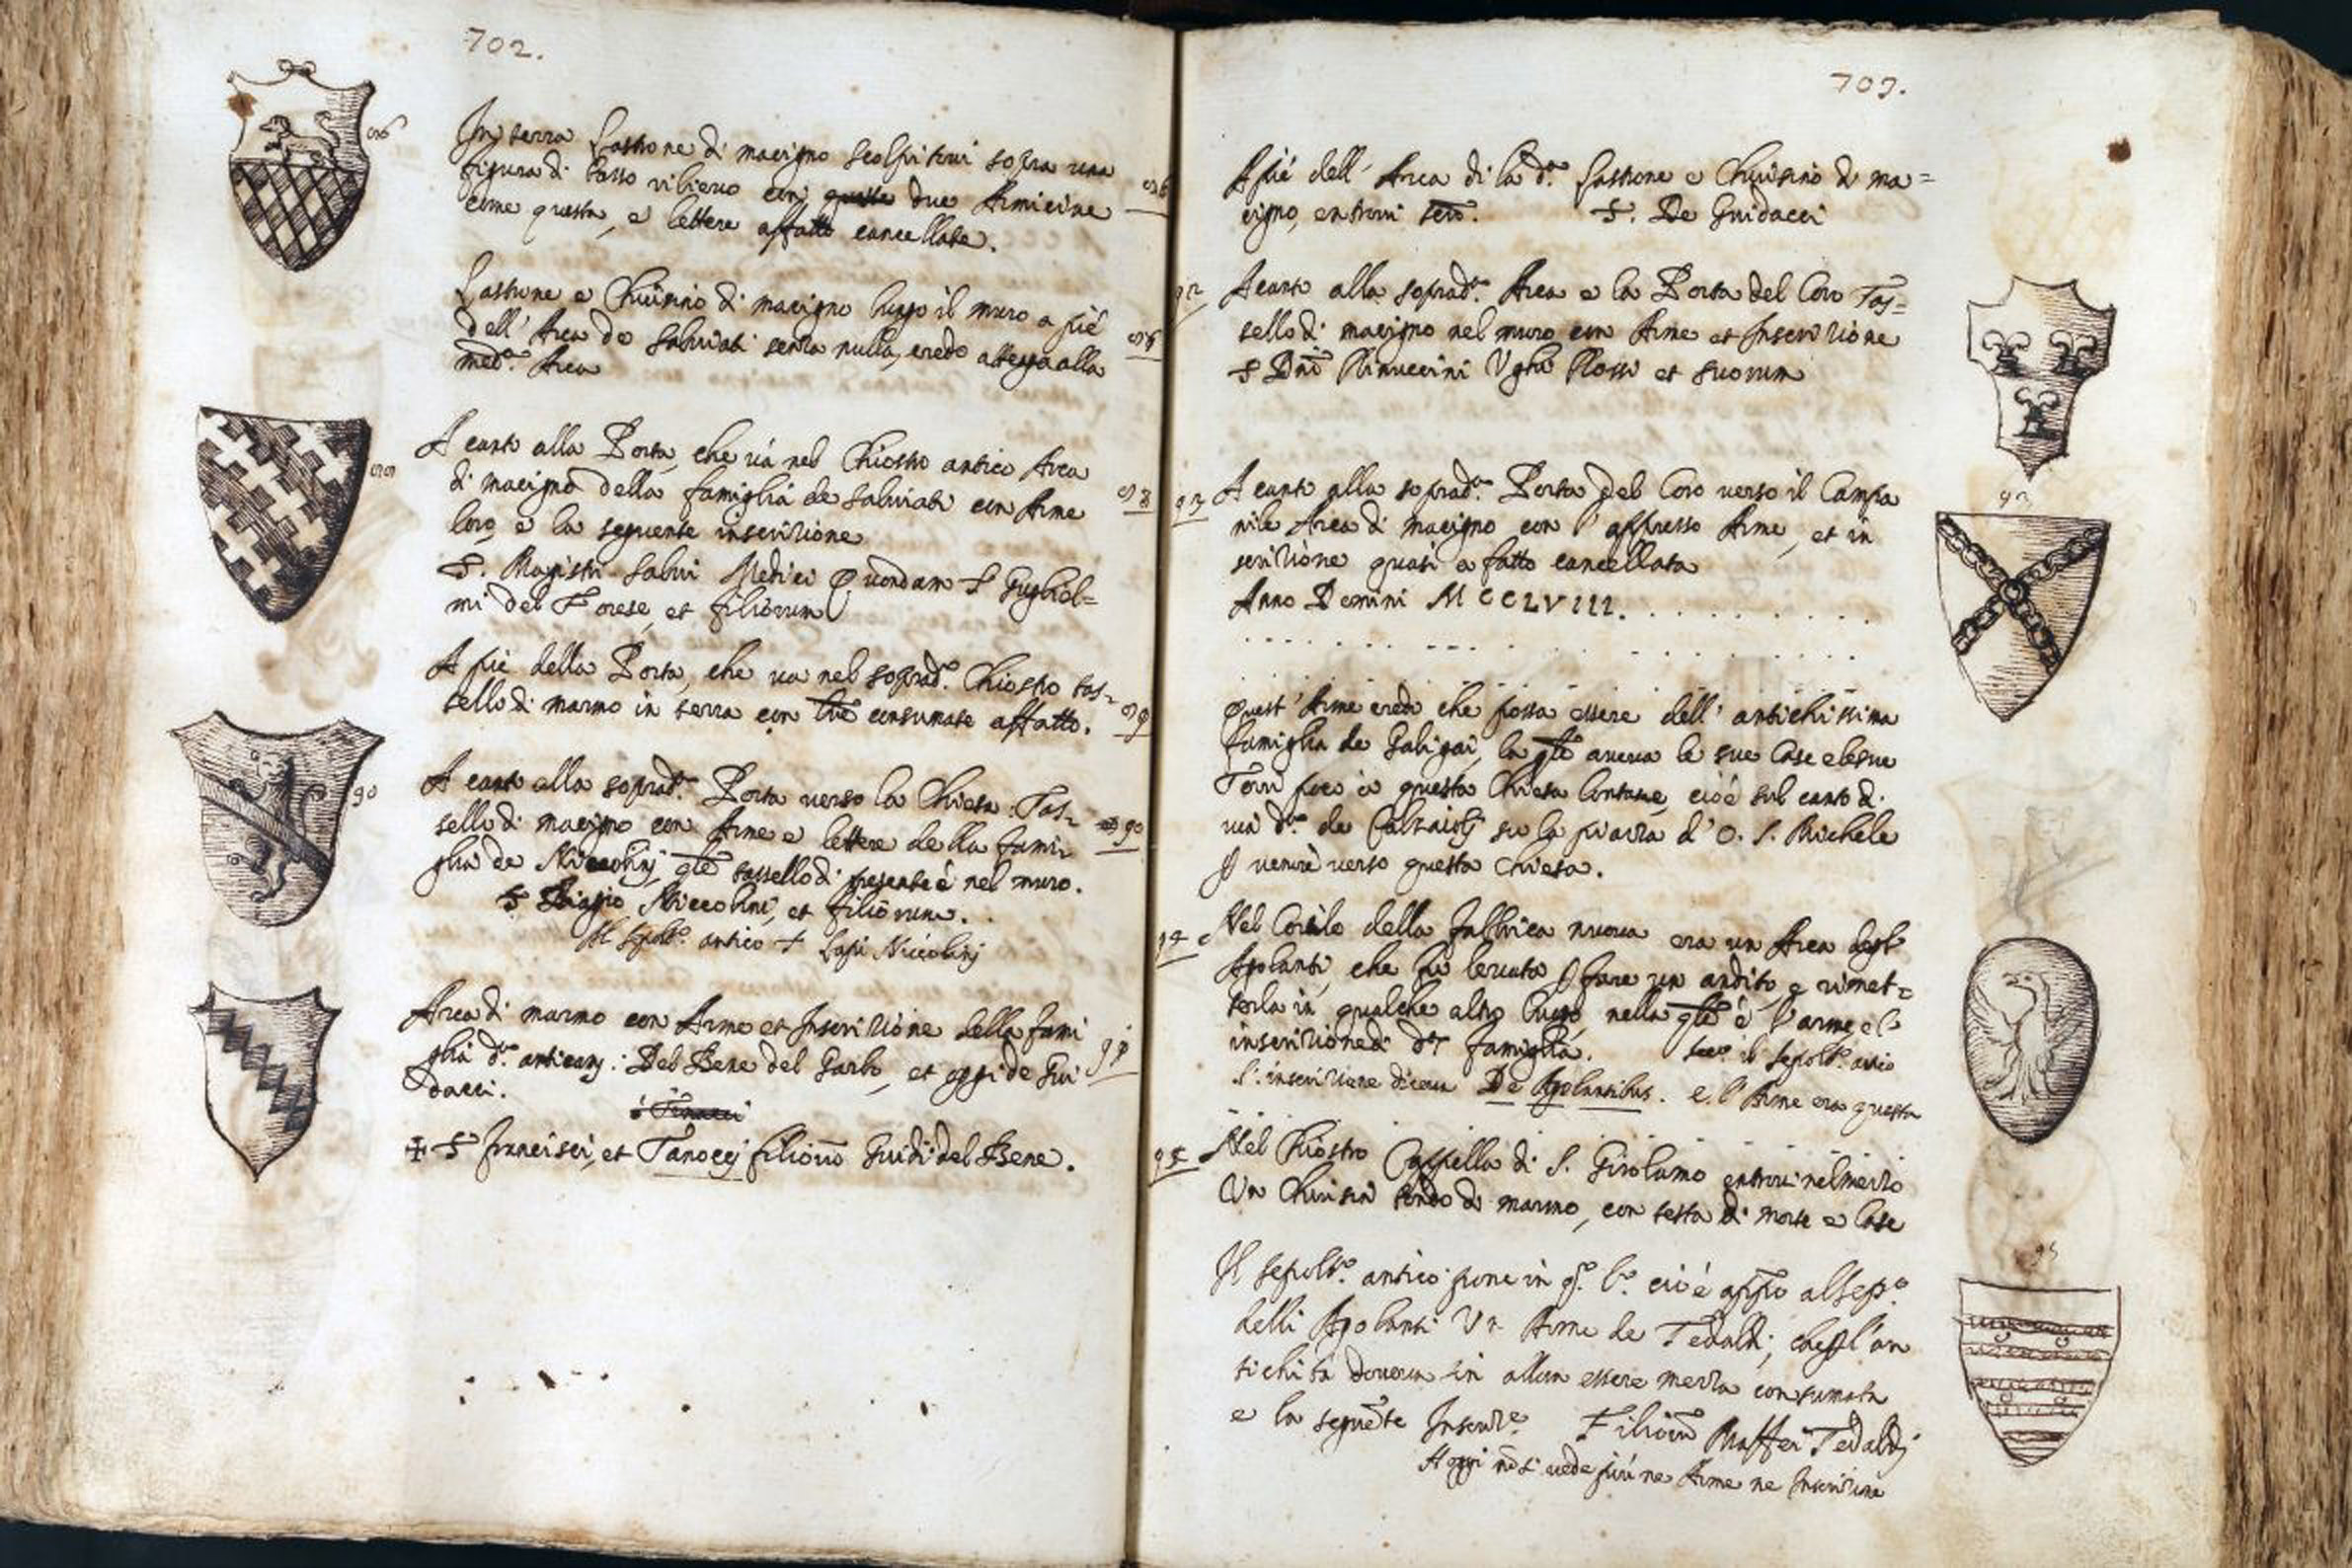 702.
In terra Lastrone di macigno scolpitovi sopra una
figura di basso rilievo con queste due Armicine
come questa, e lettere affatto cancellate.
86
Lastrone e Chiusino di macigno lungo il muro a piè
dell' Arca de Salviati senza nulla, credo attenga alla
med.ª Arca
A canto alla Porta, che và nel Chiostro antico Arca
di macigno della famiglia de Salviati con Arme
loro, e la seguente inscrizione
S. Magistri Salvi Medici Quondam S Gugliel=
mi del Forese, et filiorum
88
A piè della Porta, che va nel soprad.º Chiostro tas=
sello di marmo in terra con lre consumate affatto.
89
A canto alla soprad.ª Porta verso la Chiesa. Tas=
sello di macigno con Arme e lettere della fami=
glia de Niccolinj, qle tassello di presente è nel muro.
90
S Biagio Niccolini, et filiorum.
Il Sepolt.º antico + Lapi Niccolinj
Arca di marmo con Arme et Inscrizione della fami
glia d.ª anticam: Del Bene del Garbo, et oggi de Gui
dacci.
91
✠ S Francisci, et Tanoccj filior̄u Guidi del Bene.
707.
A piè dell' Arca di là d.ª Lastrone e Chiusino di ma=
cigno, entrovi scro. S. De Guidacci
92 A canto alla soprad.ª Arca e la Porta del Coro Tas=
sello di macigno nel muro con Arme et Inscrizione
S Dni Rinuccini Ughi Rossi et suorum
93 A canto alla soprad.ª Porta del Coro verso il Campa
nile Arca di macigno con l' appresso Arme, et in
scrizione quasi a fatto cancellata
Anno Domini MCCLVIII. . . . . . . . .
. . . . . . . . . . . . . . . . .
Quest' Arme credo che possa essere dell' antichissima
famiglia de Galigai, la qle aveva le sue Case e le sue
Torri poco a questa Chiesa lontane, cioè sul canto di
via d.ª de Calzaiolj su la piazza d' O. S. Michele
p venire verso questa Chiesa.
94 Nel Cortile della fabbrica nuova era un Arca degl'
Agolanti, che fu levata p fare un andito e rimet=
terla in qualche altro luogo, nella qle è l'arme e l'
inscrizione di d.ª famiglia. il sepolt.º antico
l' inscrizione diceva De Agolantibus. e l' Arme era questa
95 Nel Chiostro Cappella di S. Girolamo entrovi nel mezzo
Un Chiusin tondo di marmo, con testa di morte e Ossa
Il sepolt.º antico pone in q.º l.º cioè app̄o al sep.º
delli Agolanti Un Arme de Tedaldi, che p l'an
tichità doveva in allora essere mezza consumata
e la segue̅te Inscrize. Filior̄u Maffei Tedaldj
Oggi nō si vede più ne Arme ne Inscrizione
90
93
95